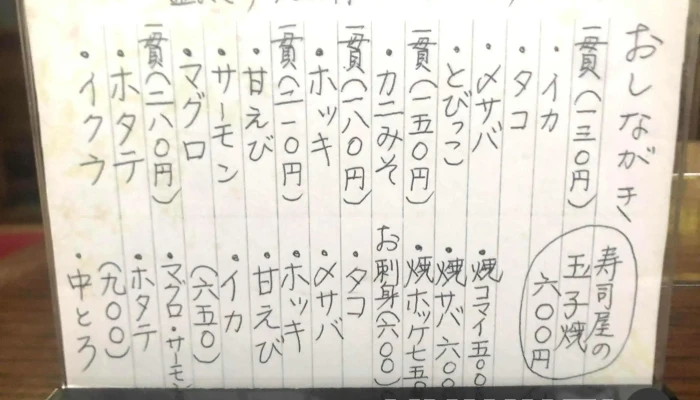 おしながき
一貫(一三〇円)
・イカ
・タコ
・〆サバ
・とびっこ
一貫(一五〇円)
・カニみそ
一貫(一八〇円)
・ホッキ
一貫(二一〇円)
・甘えび
・サーモン
・マグロ
一貫(二八〇円)
・ホタテ
・イクラ
寿司屋の
玉子焼
六〇〇円
・焼コマイ五〇〇
・焼サバ六〇〇
・焼ホッケ七五〇
お刺身(六〇〇)
・タコ
・〆サバ
・ホッキ
・甘えび
・イカ
(六五〇)
・マグロ・サーモン
・ホタテ
(九〇〇)
・中とろ